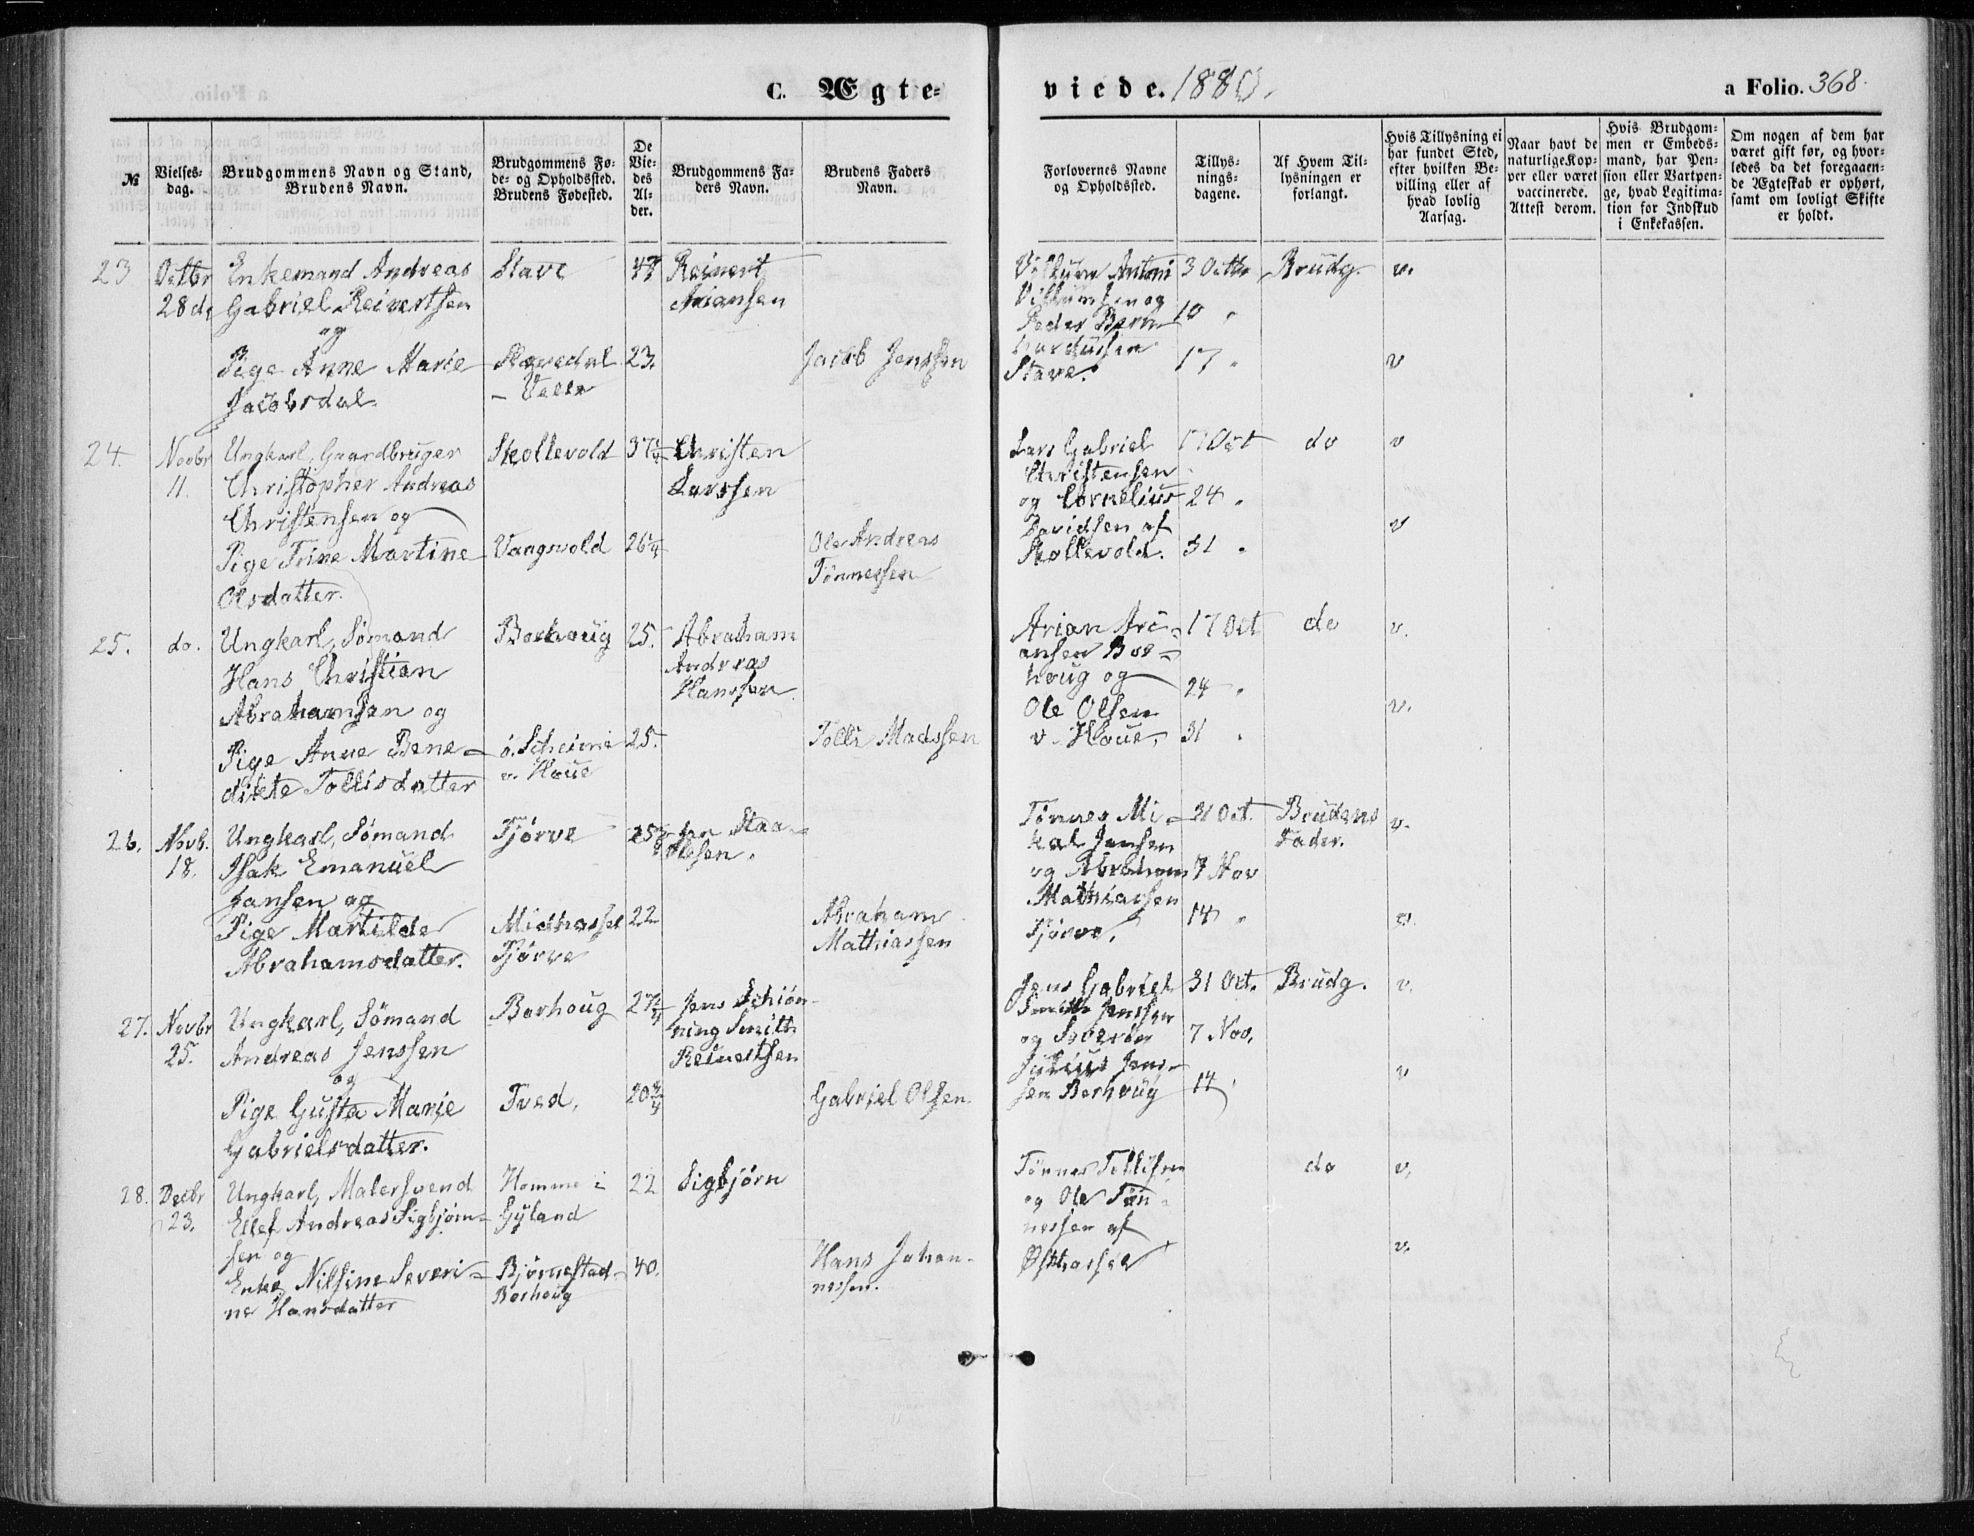 C. Ægte-
viede. 1880.
a Folio. 368.
№
Vielses-
dag.
Brudgommens Navn og Stand,
Brudens Navn.
Brudgommens Fø-
de- og Opholdssted.
Brudens Fødested.
De
Vie-
des
Al-
der.
Brudgommens Fa-
ders Navn.
Brudens Faders
Navn.
Forlovernes Navne
og Opholdssted.
Tillys-
nings-
dagene.
Af Hvem Til-
lysningen er
forlangt.
Hvis Tillysning ei
har fundet Sted,
efter hvilken Be-
villing eller af
hvad lovlig
Aarsag.
Naar havt de
naturlige Kop-
per eller været
vaccinerede.
Attest derom.
Hvis Brudgom-
men er Embeds-
mand, har Pen-
sion eller Vartpen-
ge, hvad Legitima-
tion for Indskud
i Enkekassen.
Om nogen af dem har
været gift før, og hvor-
ledes da det foregaaen-
de Ægteskab er ophørt,
samt om lovligt Skifte
er holdt.
23 Octbr Enkemand Andreas Stave 47 Reinert
28d. Gabriel Reinertsen Ariansen
og
Pige Anne Marie 23. Jacob Jenssen
Jacobsdal.
Villum Antoni 3 Octbr Brudg. v.
Villumsen og
Peder Bern- 10 "
hardussen 17 " v
Stave.
24. Novbr Ungkarl, Gaardbruger Skollevold 37 Christen
11. Christopher Andreas Larssen
Christensen og
Pige Trine Martine Vangsvold 26 Ole Andreas
Olsdatter. Tønnessen
Lars Gabriel 17 Oct do v
Christensen
og Cornelius 24 "
Davidsen af v
Skollevold. 31 "
25. do. Ungkarl, Sømand Borhoug 25. Abraham
Hans Christian Andreas
Abrahamsen og Hanssen
Pige Anne Bene- 25. Tolli Madssen
dikte Tollisdatter v. Houe
Arian Ari- 17 Oct do v.
ansen Bor-
houg og 24 "
Ole Olsen v.
v. Houe, 31 "
26. Novb. Ungkarl, Sømand Tjørve 25 Jan
18. Isak Emanuel Olsen.
Jansen og
Pige Martilde Midhassel 22 Abraham
Abrahamsdatter. Tjørve Mathiassen
Tønnes Mi- 31 Oct. Brudens v.
kal Jansen Fader.
og Abraham 7 Nov
Mathiassen
Tjørve, 14 " v.
27. Novbr Ungkarl, Sømand Borhoug 27 Jens Schiøn-
25. Andreas Jenssen ning Smith
og Reinertsen
Pige Gusta Marie Tved, 20 3/4 Gabriel Olsen
Gabrielsdatter.
Jens Gabriel 31 Oct. Brudg. v.
Smith Jenssen
og Severin 7 Nov.
Julius Jens- v
sen Borhoug 14 "
28. Decbr Ungkarl, Malersvend Homme i 22 Sigbjørn
23. Ellef Andreas Sigbjørn- Gyland
sen og
Enke Nilsine Severi- Bjørnestad- 40. Hans Johan-
ne Hansdatter Borhoug nessen.
Tønnes Tollisen do v.
og Ole Tøn-
nessen af
Østhassel v.